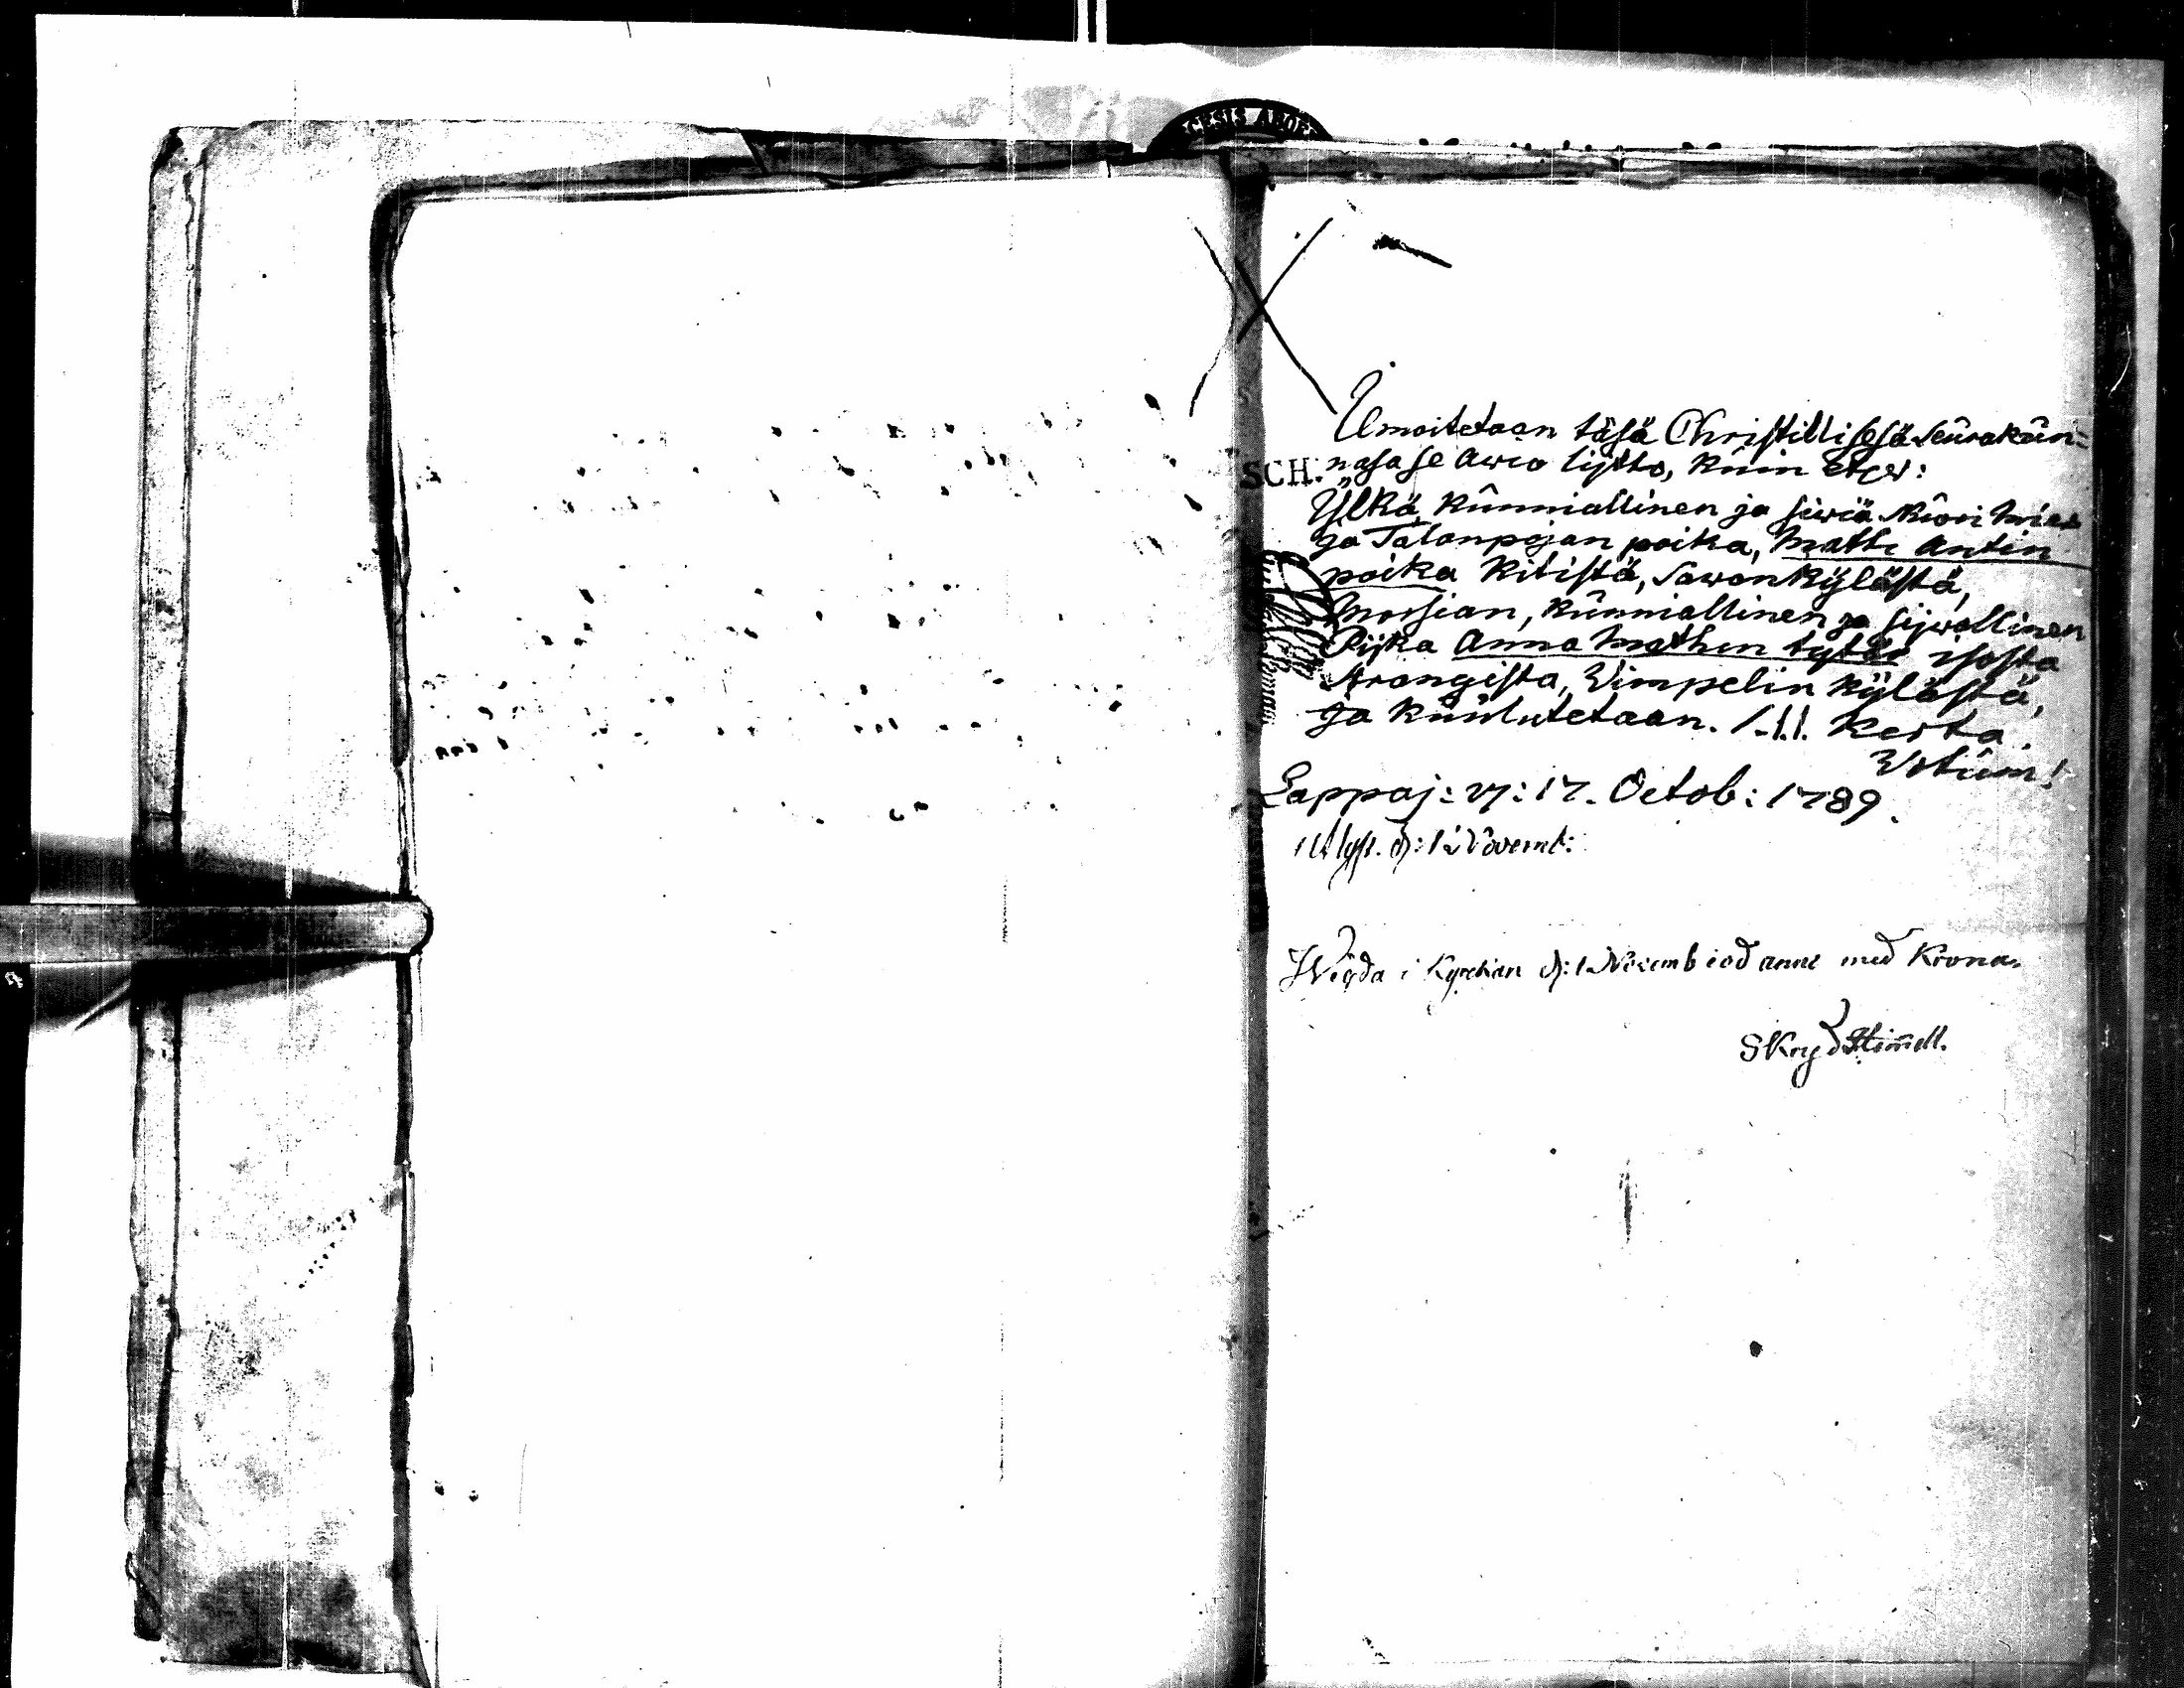 CESIS ABOE
Ilmoitetaan täsä Christillisesä Seürakün-
SCH. nasa se Awio lijtto, küin etzü:
Ylkä, Künniallinen ja siwiä Nüori mies
ja Talonpojan poika, Matti Antin
poika Kitistä, Sawon Kylästä,
Morsian, Künniallinen ja sijwollinen
Pijka Anna Mathin tytär isosta
Arangista, Wimpelin kylästä,
ja Küülutetaan. I.II. Kerta.
Votüm!
Lappaj: D: 17. Octob: 1789.
lyst. d: 1 Novemb:
Wigda i Kyrckian d: 1 Novemb eod anno med Krona.